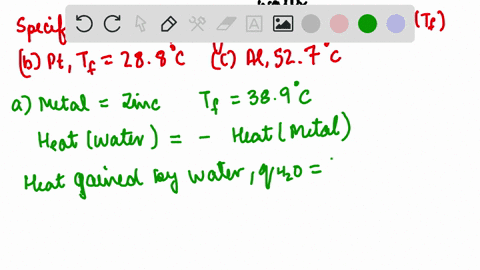 Specif (Tf)
(b) Pt, Tf = 28.8°C (c) Al, 52.7°C
a) Metal = Zinc Tf = 38.9°C
Heat (water) = - Heat (Metal)
Heat gained by water, qH2O =